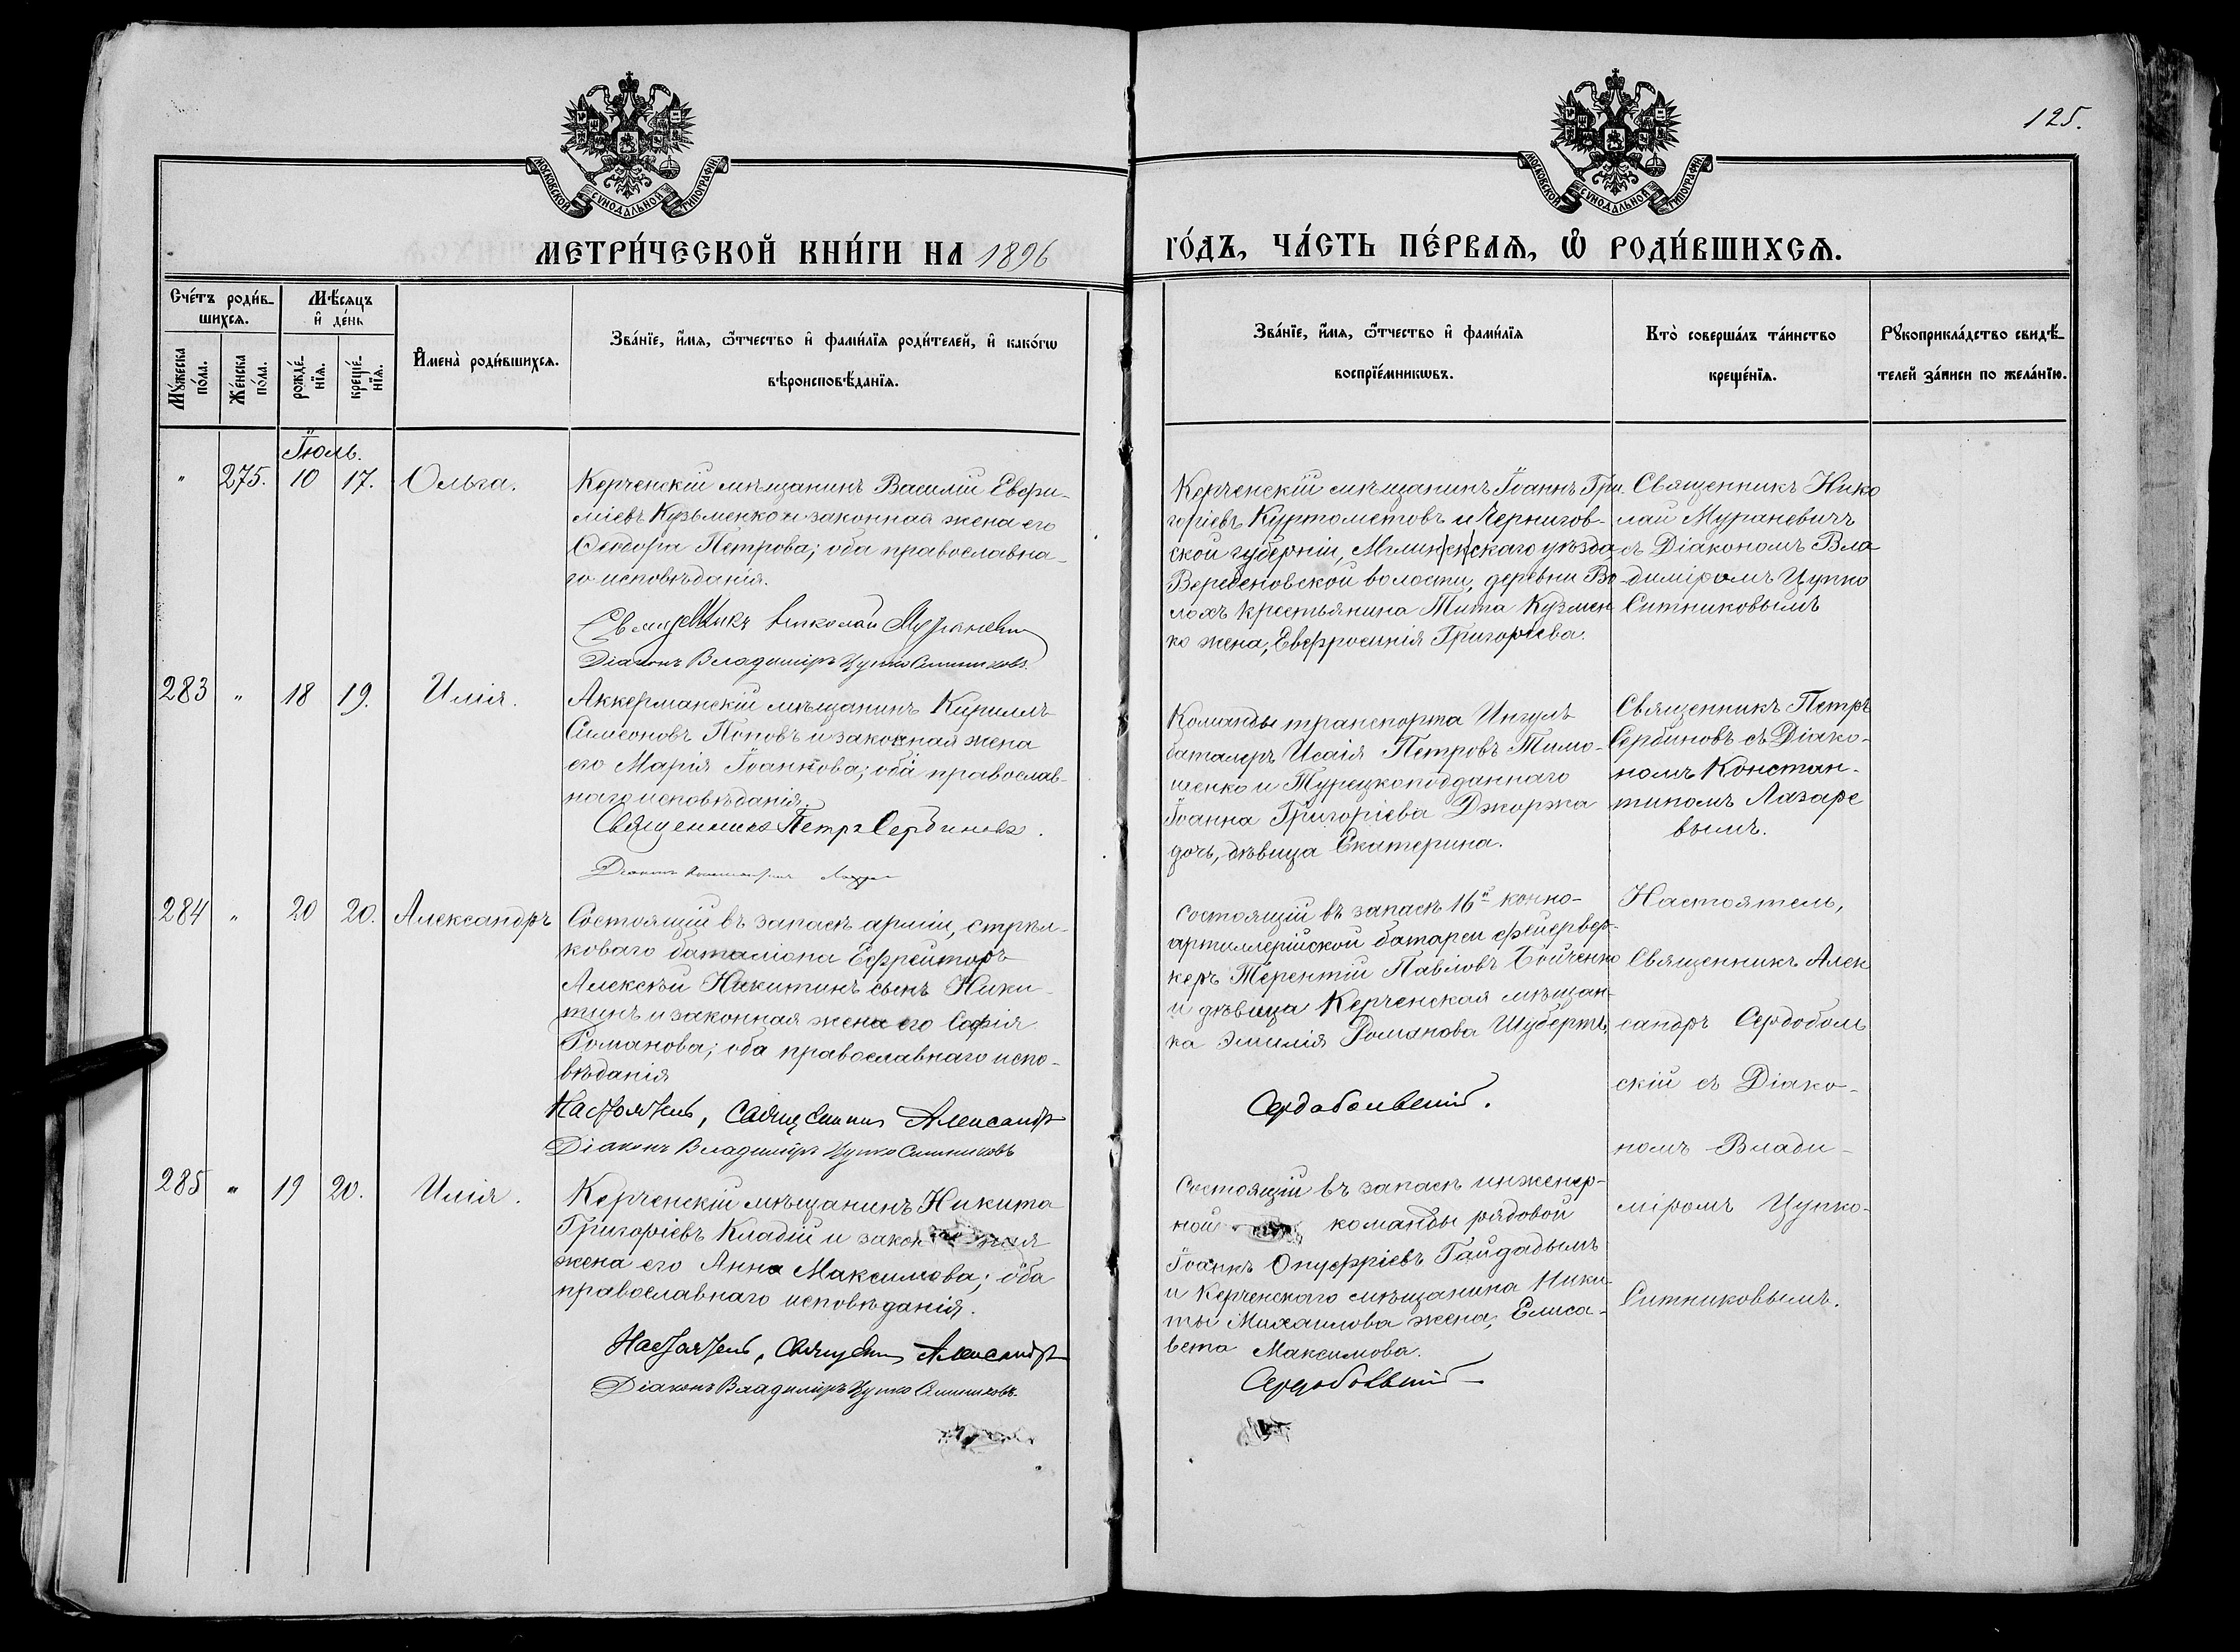 125.
МОСКОВСКОЙ СѴНОДАЛЬНОЙ ТИПОГРАФІИ
МОСКОВСКОЙ СѴНОДАЛЬНОЙ ТИПОГРАФІИ
МЕТРИ́ЧЕСКОЙ КНИ́ГИ НА 1896
ГО́ДЪ, ЧА́СТЬ ПЕ́РВАѦ, Ѽ РОДИ́ВШИХСѦ.
Сче́тъ роди́в-
шихсѧ.
Мѣ́сѧцъ
и҆ де́нь
Мꙋ́жеска
по́ла.
Же́нска
по́ла.
рожде́-
нїѧ.
креще́-
нїѧ.
И҆мена̀ роди́вшихсѧ.
Зва́нїе, и҆́мѧ, ѻ҆́тчество и҆ фами́лїѧ роди́телей, и҆ како́гѡ
вѣроисповѣ́данїѧ.
Зва́нїе, и҆́мѧ, ѻ҆́тчество и҆ фами́лїѧ
воспрїе́мникѡвъ.
Кто̀ соверша́лъ та́инство
креще́нїѧ.
Рꙋкоприкла́дство свидѣ́-
телей за́писи по жела́нїю.
Іюль.
" 275. 10 17. Ольга.
Керченскій мѣщанинъ Василій Евфи-
міевъ Кузьменко и законная жена его
Ѳеодора Петрова; оба православна-
го исповѣданія.
Священникъ Николай Мураневич
Діаконъ Владиміръ Цупко Ситниковъ.
Керченскій мѣщанинъ Іоаннъ Гри
горіевъ Куртометовъ и Чернигов-
ской губерніи, Мглинскаго уѣзда,
волости, деревни Во
лохъ крестьянина Тита Кузмен
ко жена, Евфросинія Григоріева.
Священникъ Нико
лай Мураневичъ
съ Діакономъ Вла
диміромъ Цупко
Ситниковымъ
283 " 18 19. Илія.
Аккерманскій мѣщанинъ Кириллъ
Симеоновъ Поповъ и законная жена
его Марія Іоаннова; оба православ-
наго исповѣданія.
Священникъ Петръ Сербиновъ.
Діаконъ
Команды транспорта Ингулъ
баталеръ Исаія Петровъ Тимо-
шенко и Турецкоподданнаго
Іоанна Григоріева Джоржа
дочь, дѣвица Екатерина.
Священникъ Петръ
Сербиновъ съ Діако-
номъ Констан-
тиномъ Лазаре
вымъ.
284 " 20 20. Александръ
Состоящій въ запасѣ арміи, стрѣл-
коваго баталіона Ефрейторъ
Алексѣй Никитинъ сынъ Ники-
тинъ и законная жена его Софія
Романова; оба православнаго испо-
вѣданія
Настоятель, Священникъ Александръ
Діаконъ Владиміръ Цупко Ситниковъ
Состоящій въ запасѣ 16й конно-
артиллерійской батареи фейервер-
керъ Терентій Павловъ Бойченко
и дѣвица Керченская мѣщан-
ка Эмилія Романова Шубертъ,
Сердобольскій.
Настоятель,
Священникъ Алек
сандръ Сердоболь
скій съ Діако-
номъ Влади-
міромъ Цупко-
Ситниковымъ.
285 " 19 20. Илія.
Керченскій мѣщанинъ Никита
Григоріевъ Кладій и закон ная
жена его Анна Максимова; оба
православнаго исповѣданія.
Настоятель, Священникъ Александръ
Діаконъ Владиміръ Цупко Ситниковъ.
Состоящій въ запасѣ инженер-
ной команды рядовой
Іоаннъ Онуфріевъ Гайдадымъ
и Керченскаго мѣщанина Ники-
ты Михаилова жена, Елиса-
вета Максимова.
Сердобольскій